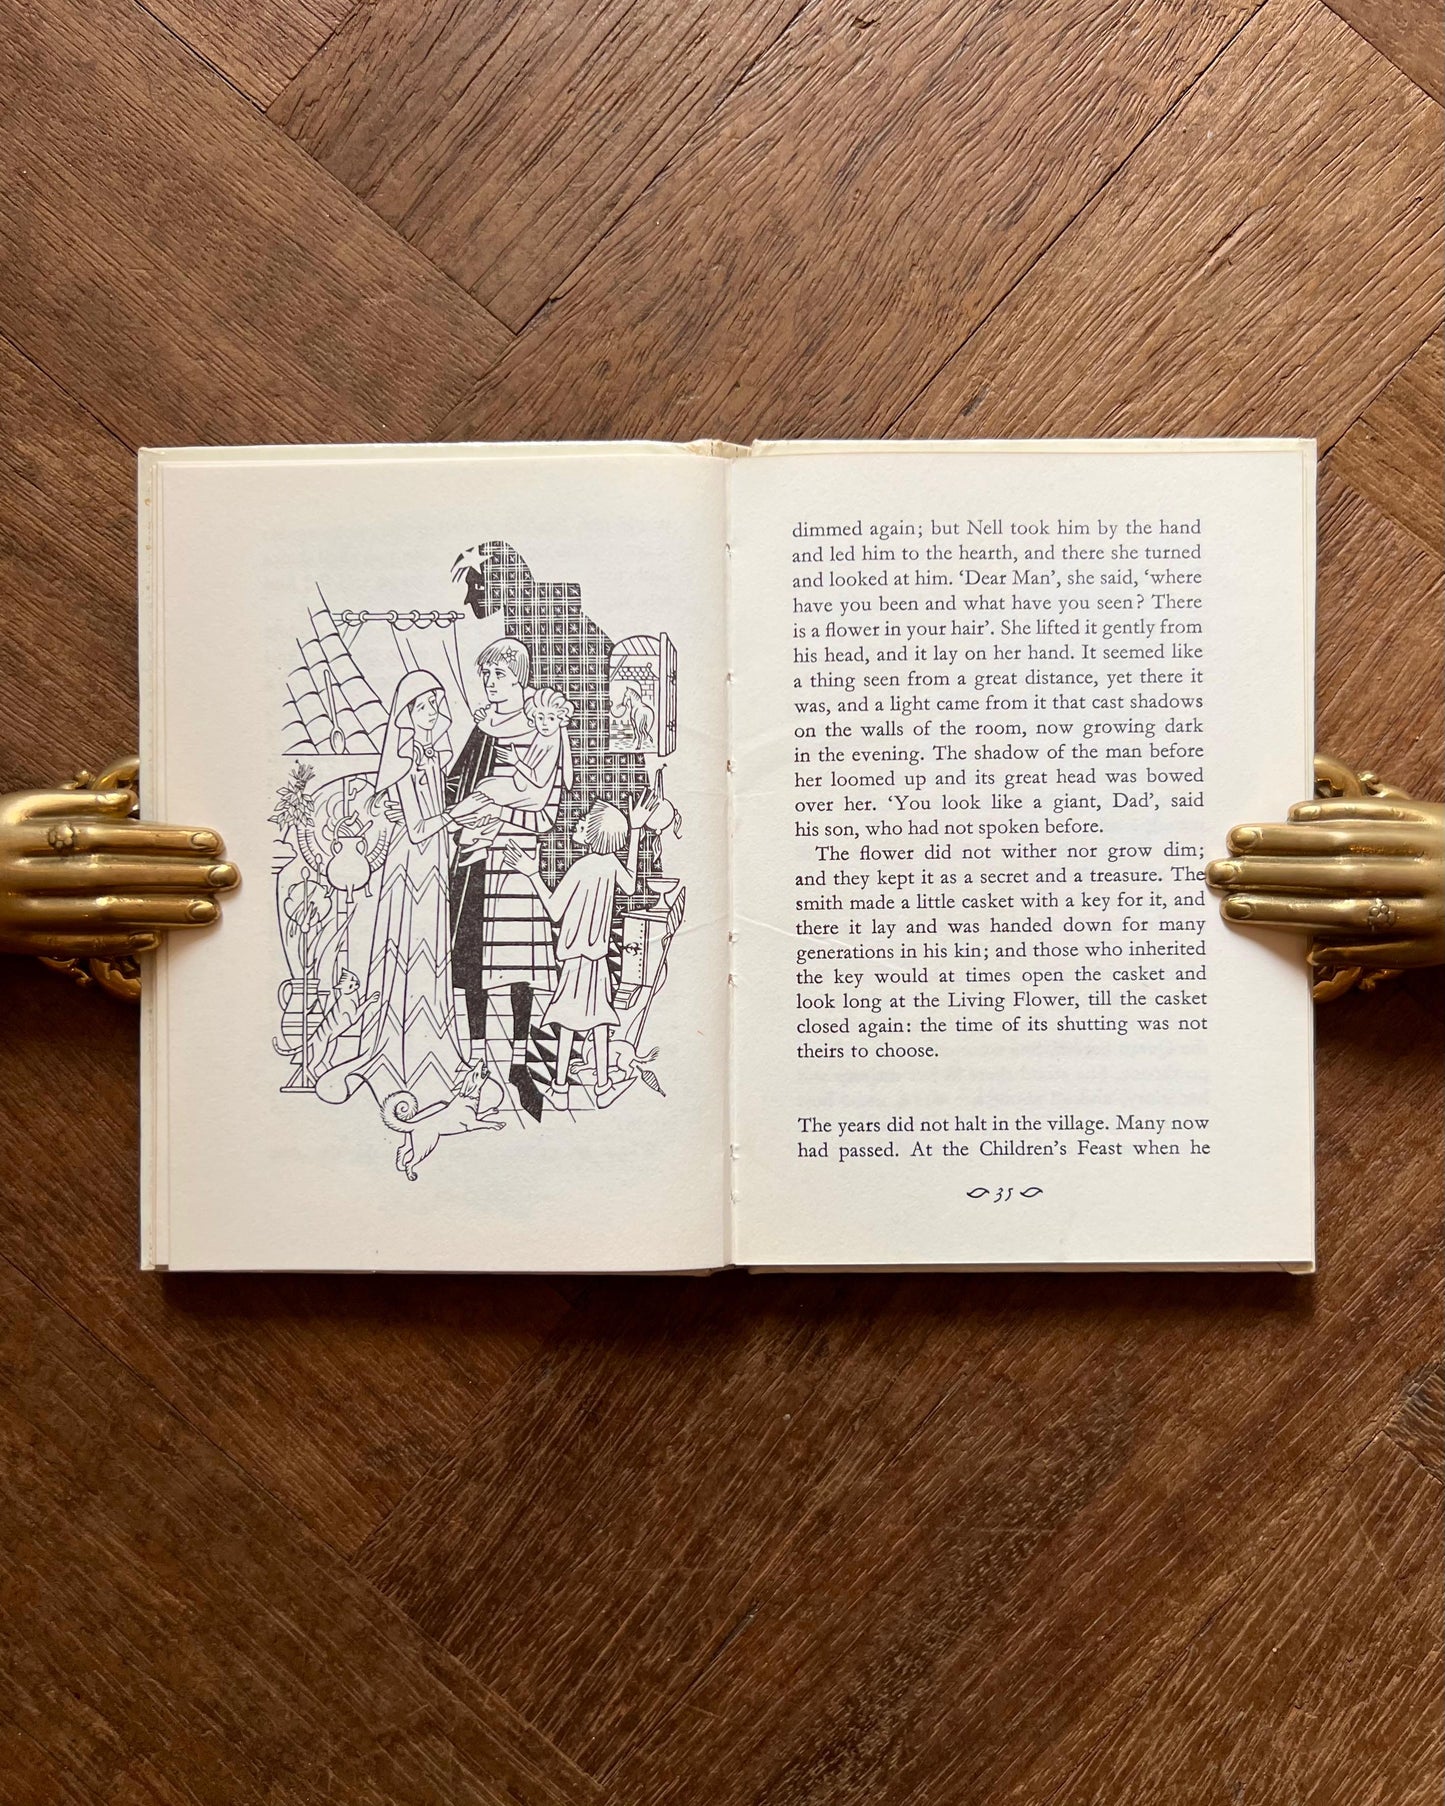 dimmed again; but Nell took him by the hand
and led him to the hearth, and there she turned
and looked at him. ‘Dear Man’, she said, ‘where
have you been and what have you seen? There
is a flower in your hair’. She lifted it gently from
his head, and it lay on her hand. It seemed like
a thing seen from a great distance, yet there it
was, and a light came from it that cast shadows
on the walls of the room, now growing dark
in the evening. The shadow of the man before
her loomed up and its great head was bowed
over her. ‘You look like a giant, Dad’, said
his son, who had not spoken before.
The flower did not wither nor grow dim;
and they kept it as a secret and a treasure. The
smith made a little casket with a key for it, and
there it lay and was handed down for many
generations in his kin; and those who inherited
the key would at times open the casket and
look long at the Living Flower, till the casket
closed again: the time of its shutting was not
theirs to choose.
The years did not halt in the village. Many now
had passed. At the Children’s Feast when he
35